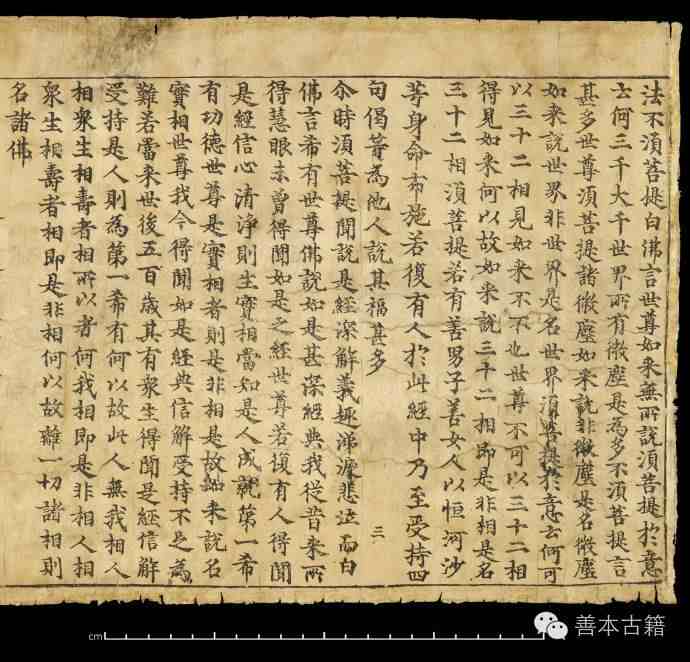 法不須菩提白佛言世尊如来無所說須菩提於意
云何三千大千世界所有微塵是為多不須菩提言
甚多世尊須菩提諸微塵如来說非微塵是名微塵
如来說世界非世界是名世界須菩提於意云何可
以三十二相見如来不不也世尊不可以三十二相
得見如来何以故如来說三十二相即是非相是名
三十二相須菩提若有善男子善女人以恒河沙
等身命布施若復有人於此經中乃至受持四
句偈等為他人說其福甚多
三
尒時須菩提聞說是經深解義趣涕淚悲泣而白
佛言希有世尊佛說如是甚深經典我從昔来所
得慧眼未曾得聞如是之經世尊若復有人得聞
是經信心清淨則生實相當知是人成就第一希
有功德世尊是實相者則是非相是故如来說名
實相世尊我今得聞如是經典信解受持不足為
難若當来世後五百歲其有衆生得聞是經信解
受持是人則為第一希有何以故此人無我相人
相衆生相壽者相所以者何我相即是非相人相
衆生相壽者相即是非相何以故離一切諸相則
名諸佛
cm
善本古籍